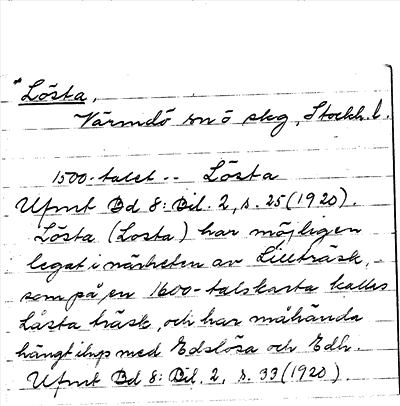 * Lösta,
Värmdö sn ö skg, Stockh. l.
1500-talet -- Lösta
Ufmt Bd 8: Bil. 2, s. 25 (1920).
Lösta (Losta) har möjligen
legat i närheten av Lillträsk, -
som på en 1600-talskarta kallas
Låsta träsk, och har måhända
hängt ihop med Edslösa och Edh.
Ufmt Bd 8: Bil. 2, s. 33 (1920).